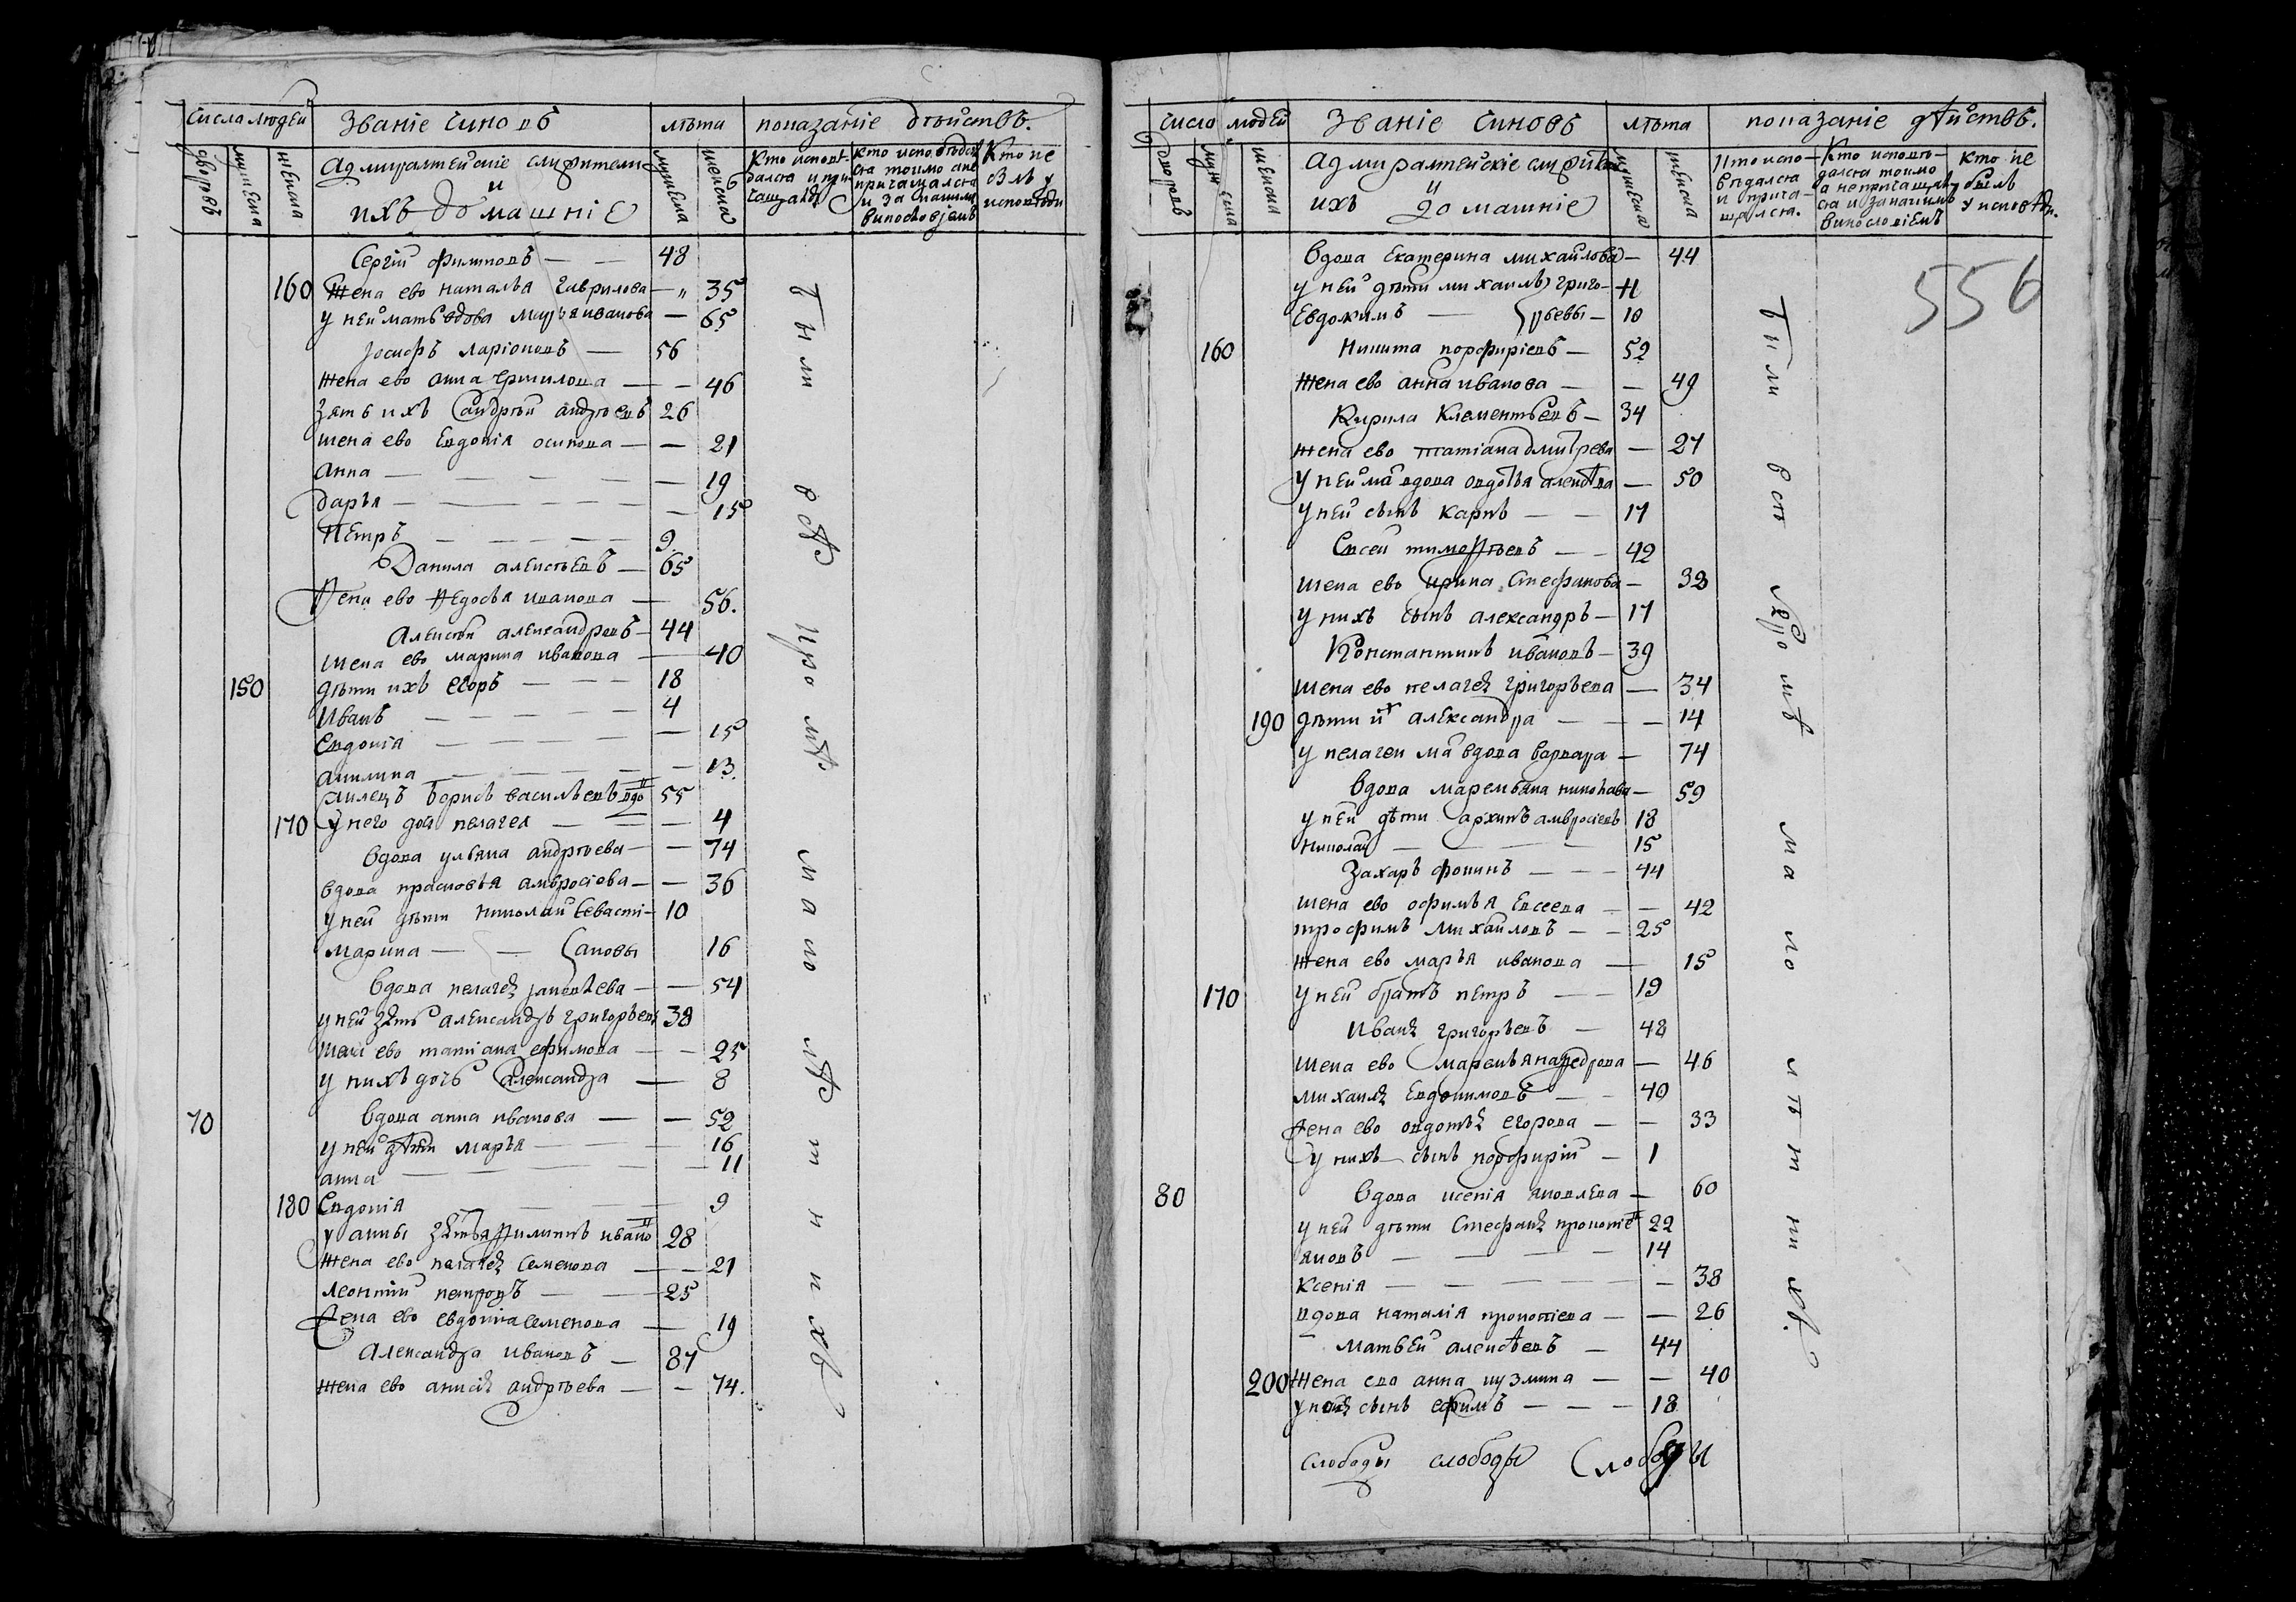 Числа людей
Званіе чиновъ
лѣта
показаніе дѣйствъ.
дворовъ
мужеска
женска
Адмиралтейскіе служители
и
ихъ домашніе
мужеска
женска
Кто исповѣ-
дался и при-
чащался
Кто исповѣдал
ся токмо а не
причащался
и за какимъ
винословіемъ
Кто не
былъ у
исповѣди
Сергій Филиповъ — — 48
160 Жена ево наталья Гаврилова — " 35
у ней мать вдова марья иванова — 65
Іосифъ ларіоновъ — 56
жена ево анна — — 46
зять ихъ андрѣй андрѣевъ 26
жена ево Евдокія осипова — — 21
анна — — — — — 19
дарья — — — — — 15
Петръ — — — — — 9
Данила алексѣевъ — 65
Жена ево Федосья иванова — 56.
Алексѣй александровъ — 44
жена ево марина иванова — 40
150 дѣти ихъ Егоръ — — — 18
Иванъ — — — — — 4
Евдокія — — — — — 15
акилина — — — — — 13.
Борисъ васильевъ вдо 55
170 У него дочь пелагея — — — 4
вдова ульяна андрѣева — — 74
вдова прасковья амвросіева — — 36
у ней дѣти николай Севасті- 10
марина — — ановы 16
вдова пелагея — — 54
у ней зять александръ григорьевъ 38
жена ево татіана ефимова — — 25
у нихъ дочь александра — 8
70 вдова анна иванова — — 52
у ней дѣти марья — — — 16
анна — — — — — 11
180 Евдокія — — — 9
у анны зять филипъ ивано 28
жена ево пелагея семенова — — 21
леонтій петровъ — — 25
Жена ево евдокія семенова — 19
Александра ивановъ — 87
жена ево анисія андрѣева — — 74.
были всѣ кромѣ малолѣтнихъ
число людей
званіе чиновъ
лѣта
показаніе дѣйствъ.
дворовъ
мужеска
женска
адмиралтейскіе служители
и
ихъ домашніе
мужеска
женска
Кто испо-
вѣдался
и прича-
щался.
Кто исповѣ-
дался токмо
а не причащал
ся и за какимъ
винословіемъ
кто не
былъ
у исповѣди.
556
вдова Екатерина михайлова — 44
у ней дѣти михаилъ григо- 11
Евдокимъ — рьевы — 10
160 Никита порфиріевъ — 52
жена ево анна иванова — — 49
Кирила Клементьевъ — 34
жена ево татіана дмитрева — 27
у ней ма вдова авдотья алексѣева — 50
у ней сынъ карпъ — — 17
Евсей тимофѣевъ — — 42
жена ево ирина Стефанова — 32
у нихъ сынъ александръ — 17
Константинъ ивановъ — 39
жена ево пелагея григорьева — 34
190 дѣти их александра — — — 14
у пелагеи ма вдова варвара — 74
вдова маремьяна — 59
у ней дѣти архипъ амвросіевъ 18
николай — — — 15
Захаръ фокинъ — — — 44
жена ево офимья Евсеева — — 42
трофимъ михайловъ — — 25
жена ево марья иванова — 15
170 у ней братъ петръ — — 19
Иванъ григорьевъ — 48
жена ево маремьяна федорова — 46
михаилъ Евдокимовъ — — 40
жена ево авдотья егорова — — 33
у нихъ сынъ порфирій — 1
80 вдова ксенія яковлева — 60
у ней дѣти Стефанъ прокопіе 22
яковъ — — — — 14
Ксенія — — — — — 38
вдова наталія прокопіева — — 26
матвѣй алексѣевъ — 44
200 жена ева анна кузмина — — 40
у нихъ сынъ ефимъ — — — 18
были всѣ кромѣ малолѣтнихъ.
слободы слободы Слободы